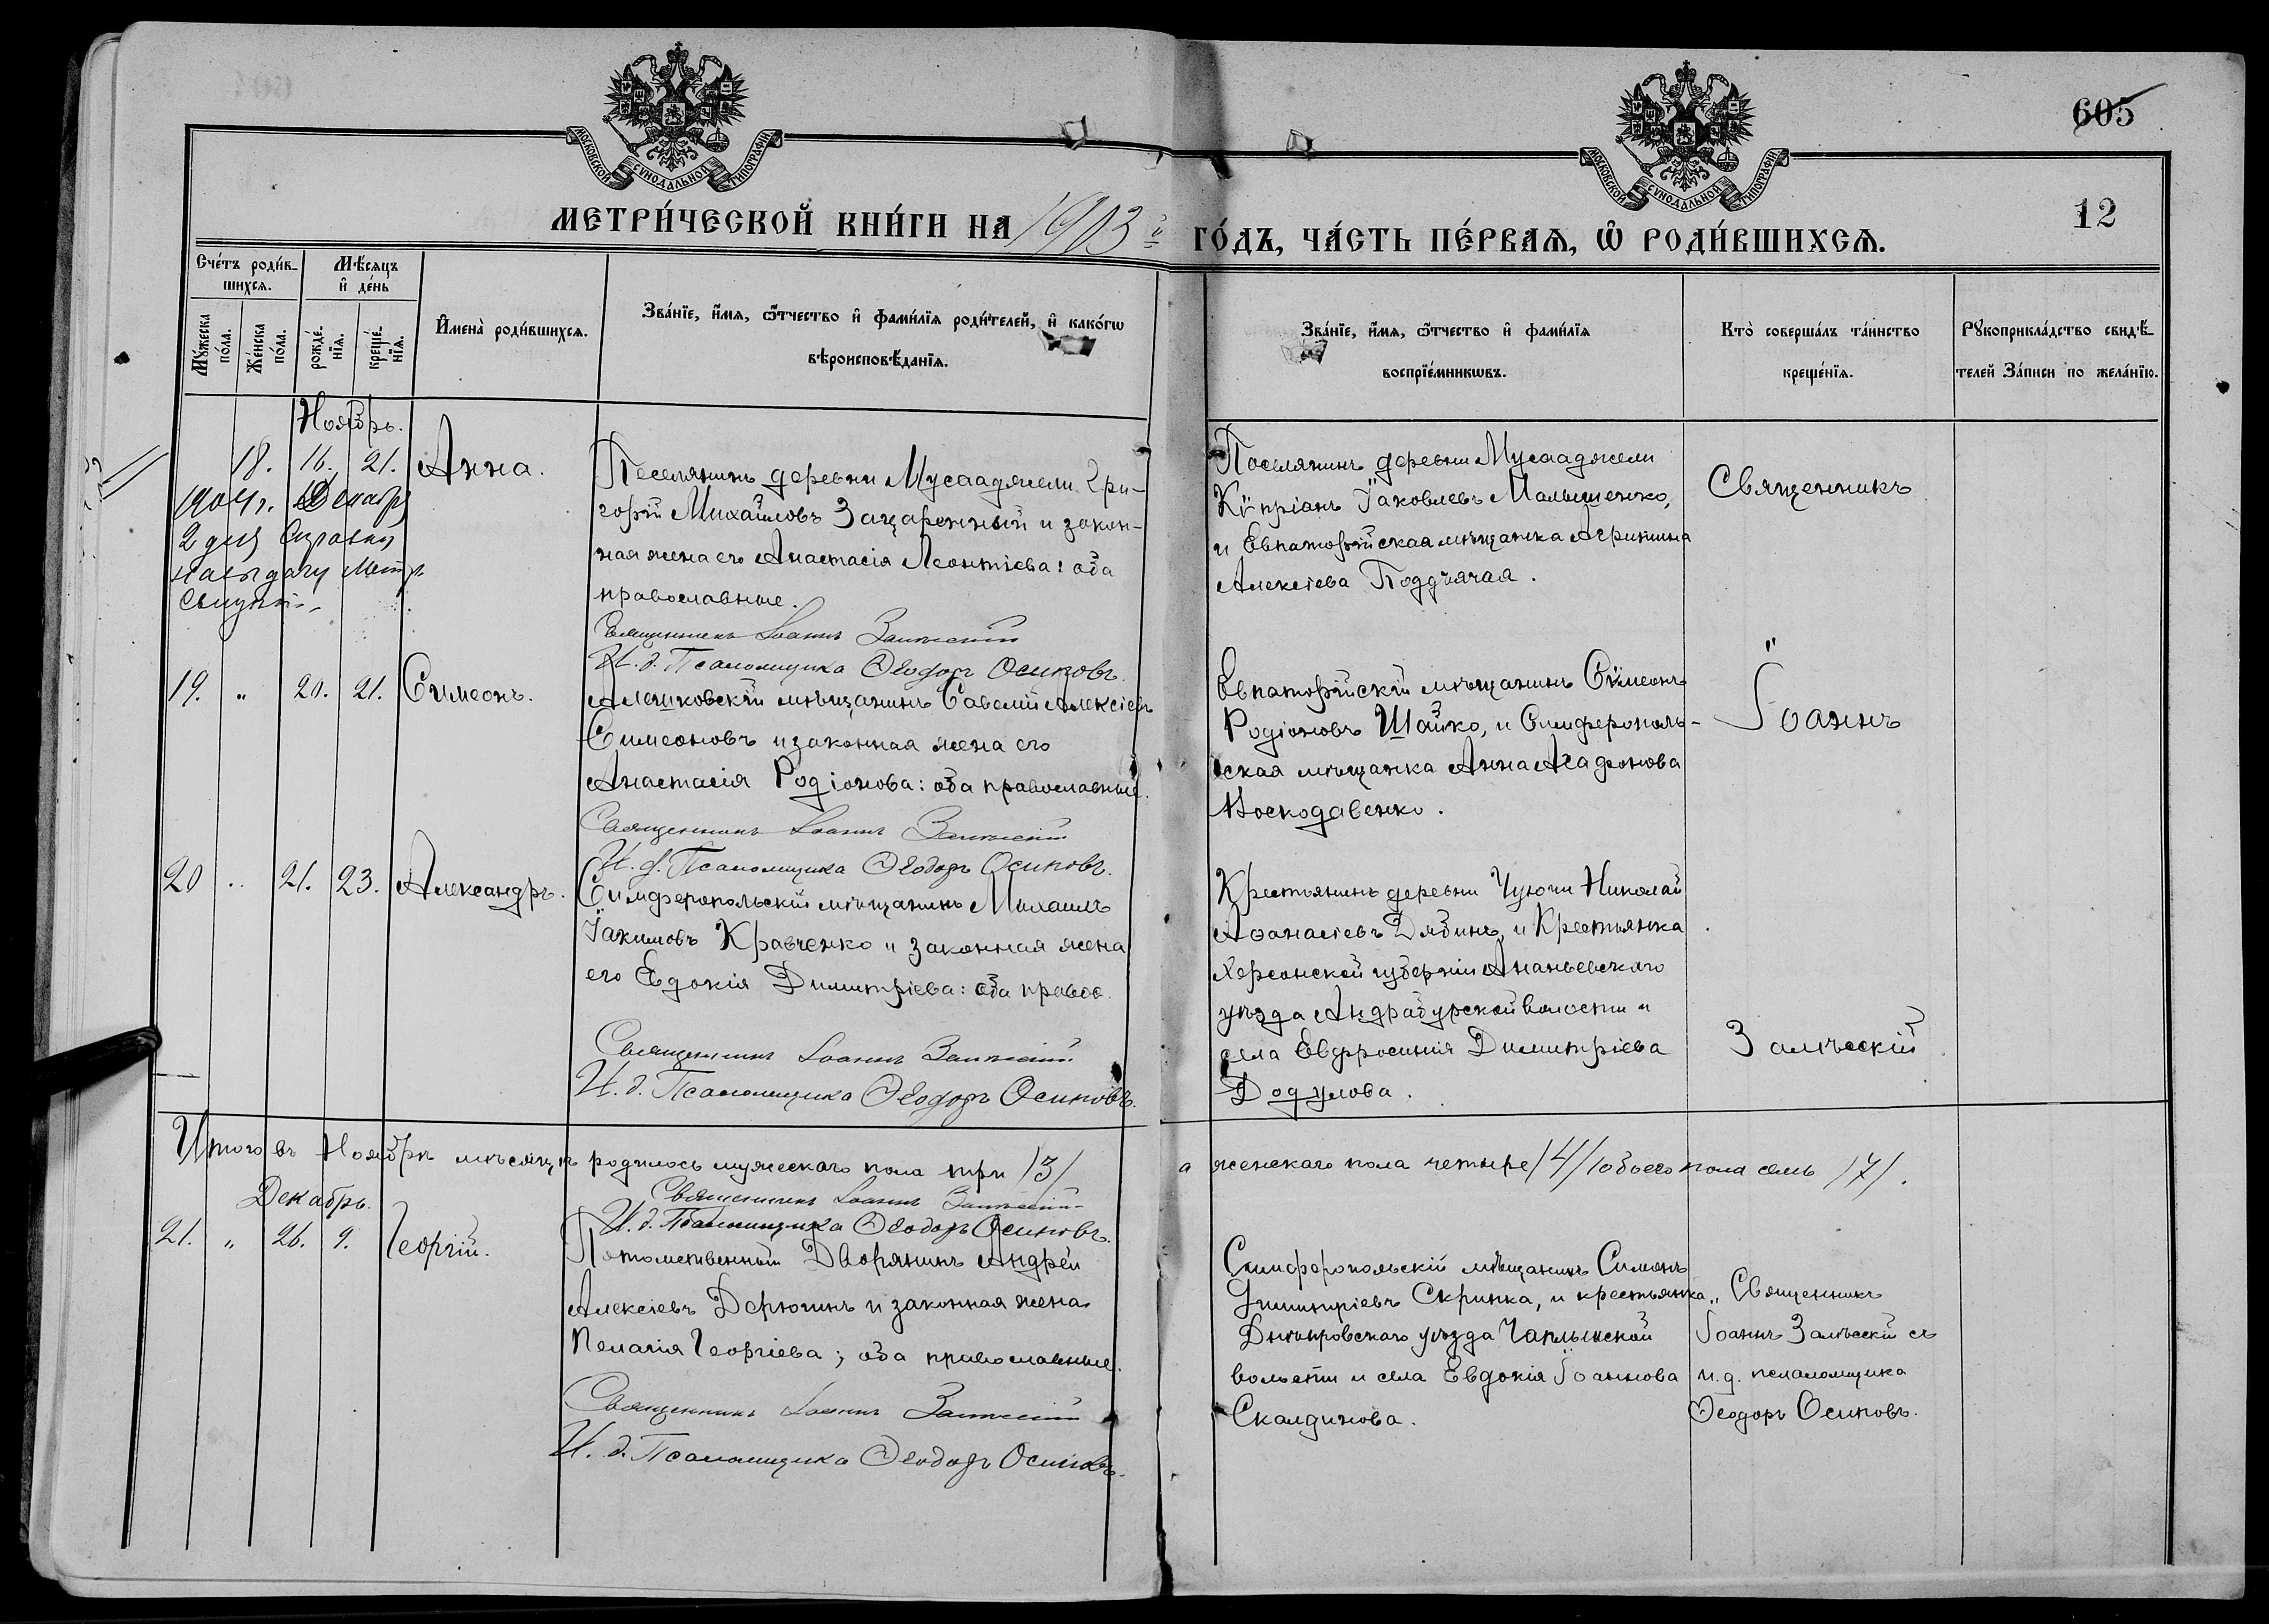 605
12
МОСКОВСКОЙ СѴНОДАЛЬНОЙ ТИПОГРАФІИ
МОСКОВСКОЙ СѴНОДАЛЬНОЙ ТИПОГРАФІИ
МЕТРИ́ЧЕСКОЙ КНИ́ГИ НА 1903 й ГО́ДЪ, ЧА́СТЬ ПЕ́РВАѦ, Ѿ РОДИ́ВШИХСѦ.
Сче́тъ роди́в-
шихсѧ.
Мѣ́сѧцъ
и де́нь
Мꙋ́жеска по́ла.
Же́нска по́ла.
рожде́-
нїѧ.
креще́-
нїѧ.
И҆мена̀ роди́вшихсѧ.
Зва́нїе, и҆́мѧ, ѻ҆́тчество и҆ фами́лїѧ роди́телей, и҆ како́гѡ
вѣроисповѣ́данїѧ.
Зва́нїе, и҆́мѧ, ѻ҆́тчество и҆ фами́лїѧ
воспрїе́мникѡвъ.
Кто̀ соверша́лъ та́инство
креще́нїѧ.
Рꙋкоприкла́дство свидѣ́-
телей За́писи по жела́нїю.
Ноябрь.
18. 16. 21. Анна.
1904 г. Декабр
2 дня Справка
на выдачу Метр.
Поселянинъ деревни Мусааджели Гри-
горій Михайловъ Захаренный и закон-
ная жена его Анастасія Леонтіева: оба
православные.
Священникъ Іоаннъ Залѣсскій
И. д. Псаломщика Ѳеодоръ Осиповъ.
Поселянинъ деревни Мусааджели
Кѵпріанъ Іаковлевъ Малышенко,
и Евпаторійская мѣщанка Агрипина
Алексіева Поддъячая.
Священникъ
19. " 20. 21. Симеонъ.
Алешковскій мѣщанинъ Савелій Алексіевъ
Симеоновъ и законная жена его
Анастасія Родіонова: оба православные.
Священникъ Іоаннъ Залѣсскій
И. д. Псаломщика Ѳеодоръ Осиповъ.
Евпаторійскій мѣщанинъ Сѵмеонъ
Родіоновъ Шайко, и Симферополь-
ская мѣщанка Анна Агафонова
Воскодавенко.
Іоаннъ
20 " 21. 23. Александръ.
Симферопольскій мѣщанинъ Михаилъ
Іакимовъ Кравченко и законная жена
его Евдокія Димитріева: оба правос.
Священникъ Іоаннъ Залѣсскій
И. д. Псаломщика Ѳеодоръ Осиповъ.
Крестьянинъ деревни Чуючи Николай
Аѳанасіевъ Дябинъ, и Крестьянка
Херсонской губерніи Ананьевскаго
уѣзда Андрабурской волости и
села Евфросинія Димитріева
Додулова.
Залѣсскій
Итого въ Ноябрѣ мѣсяцѣ родилось мужескаго пола три /3/ а женскаго пола четыре /4/ обоего пола семь /7/.
Священникъ Іоаннъ Залѣсскій
И. д. Псаломщика Ѳеодоръ Осиповъ.
Декабрь.
21. " 26. 9. Георгій.
Потомственный Дворянинъ Андрей
Алексіевъ Дерюгинъ и законная жена
Пелагія Георгіева; оба православные.
Священникъ Іоаннъ Залѣсскій
И. д. Псаломщика Ѳеодоръ Осиповъ.
Симферопольскій мѣщанинъ Симонъ
Димитріевъ Скрипка, и крестьянка
Днѣпровскаго уѣзда Чаплынской
волости и села Евдокія Іоаннова
Скалдинова.
Священникъ
Іоаннъ Залѣсскій съ
и. д. псаломщика
Ѳеодоръ Осиповъ.